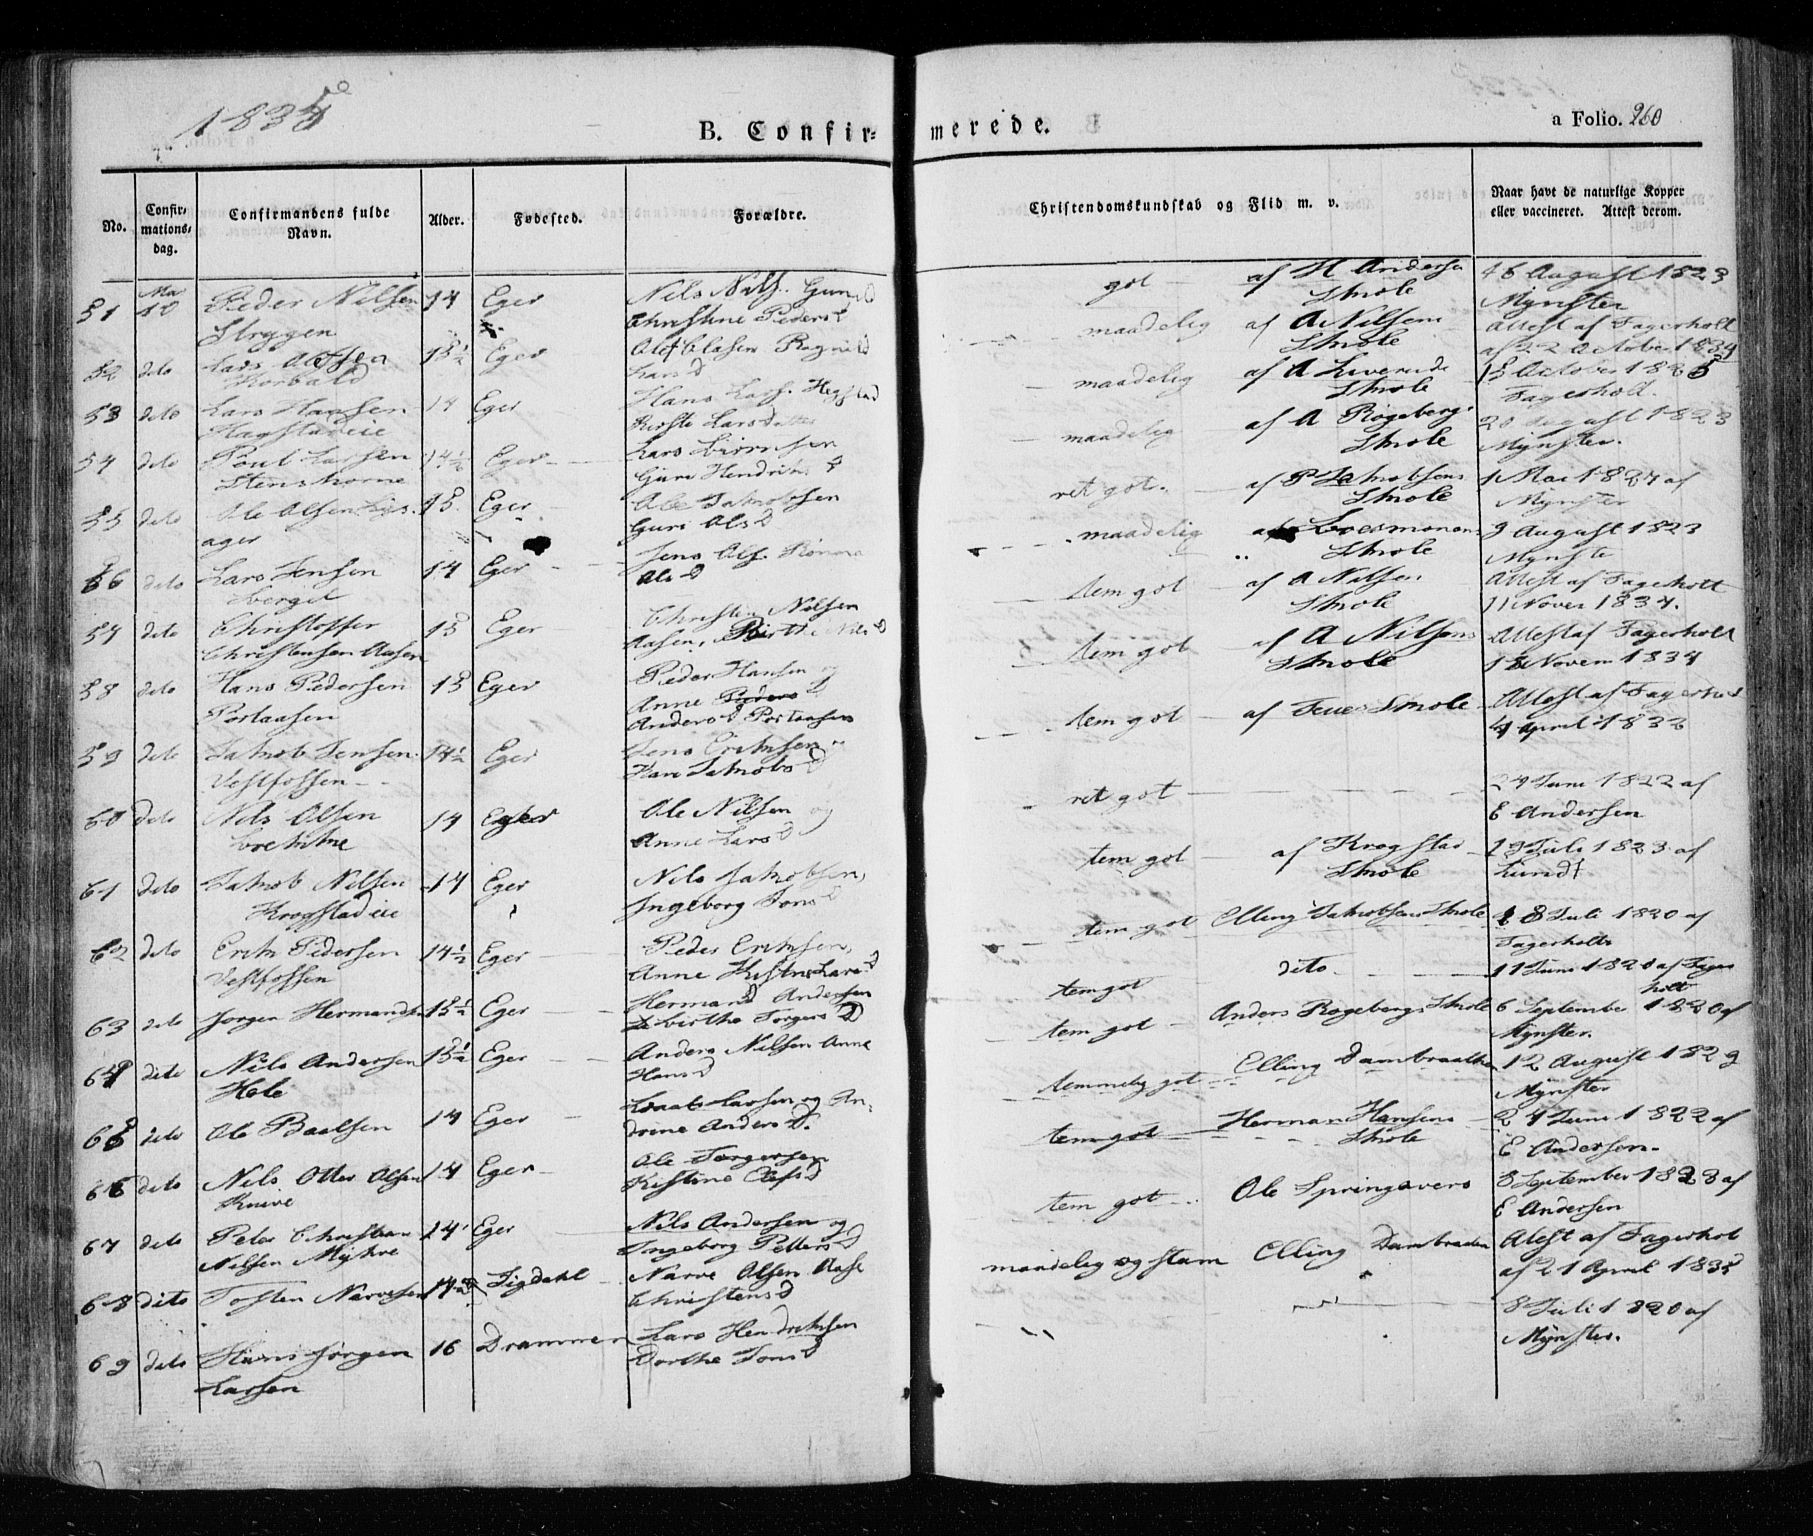 1835
B. Confir-
merede.
a Folio. 260
No.
Confir-
mations-
dag.
Confirmandens fulde
Navn.
Alder.
Fødested.
Forældre.
Christendomskundskab og Flid m. v.
Naar havt de naturlige Kopper
eller vaccineret. Attest derom.
51 Mai 10 Peder Nilsen 14 Eger Nils Nils. Gun
Strygen Christine Peders D
got af H Andersen Skole 16 August 1823
Mynster
52 dito Lars Olsen 15½ Eger Olef Olasen Ragnild
Korbald Lars D
maadelig af A Nilsens Skole Attest af Fagerholt
af 22 October 1834
53 dito Lars Hansen 14 Eger Hans Lars. Hegstad
Hagstadeie Kirsti Larsdatter
maadelig af A Liverude Skole 15 October 1825
Fagerholt.
54 dito Poul Larssen 14½ Eger Lars
Stenshorne Guri Hendriks D
maadelig af A Rogebergs Skole 20 August 1823
Mynster.
55 dito Ole Olsen Lijs. 15 Eger Ole Jakobsen
ager Guri Ols D
ret got. af P Jakobsens Skole 1 Mai 1827 af
Mynster
56 dito Lars Jensen 14 Eger Jens Ols.
Berget Ols D
maadelig af Skole 9 August 1823
Mynster
57 dito Christoffer 15 Eger Christen Nilsen
Christensen Aasen Aasen, Birthe Nils D
tem got af A Nilsen Skole Attest af Fagerholt
11 Novem 1834.
58 dito Hans Pedersen 15 Eger Peder Hansen og
Portaasen Anne Peders D
Anders D Portaasen
tem got af A Nilsens Skole Attest af Fagerholt
15 Novem 1834
59 dito Jakob Jensen 14½ Eger Jens Eriksen og
Vestfossen Kari Jakobs D
tem got af Skole Attest af Fagerholt
4 April 1832
60 dito Nils Olsen 14 Eger Ole Nilsen og
Brekke Anne Lars D
ret got 24 Juni 1822 af
E Andersen
61 dito Jakob Nilsen 14 Eger Nils Jakobsen,
Krogstadeie Ingeborg Jons D
tem got af Krogstad Skole 19 Juli 1823 af
Lundt
62 dito Erik Pedersen 14½ Eger Peder Eriksen,
Vestfossen Anne Lars D
tem got Elling Jakobsens Skole 18 Juli 1820 af
Fagerholt
63 dito Jorgen Hermandsen 15½ Eger Hermand Andersen
Birthe Torgers D
tem got dito 11 Juni 1820 af Fager
holt
64 dito Nils Andersen 15½ Eger Anders Nilsen Anne
Hole Hans D
tem got Anders Rogebergs Skole 6 September 1820 af
Mynster.
65 dito Ole Baalsen 14 Eger Larsen og An
drine Anders D.
temmelig got Elling Dambraathen 12 August 1829
Mynster
66 dito Nils Otter Olsen 14 Eger Ole Torgersen
Knive Kistine Olefs D
tem got Herman Hansens Skole 24 Juni 1822 af
E Andersen.
67 dito Peter Christian 14 Eger Nils Andersen og
Nilsen Myhre Ingeborg Petters D
tem got Ole Springavers 8 September 1823 af
E Andersen
68 dito Tosten Narvesen Sigdahl Narve Olsen Aase
Christens D
maadelig og stam Elling Dambraaten Atest af Fagerholt
af 21 April 1835
69 dito Hans Jørgen 16 Drammen Lars Hendriksen
Larsen Dorthe Jons D
8 Juli 1820 af
Mynster.